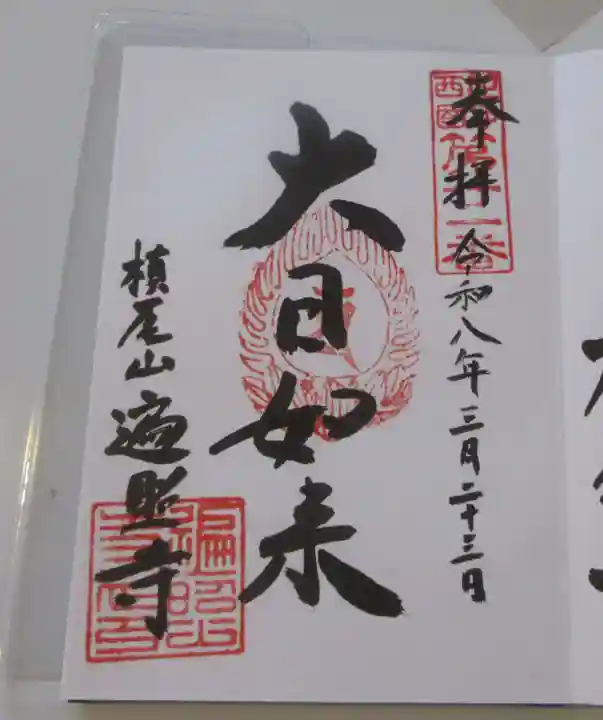 奉拝 令和八年三月二十三日
大日如来
槙尾山 遍照寺